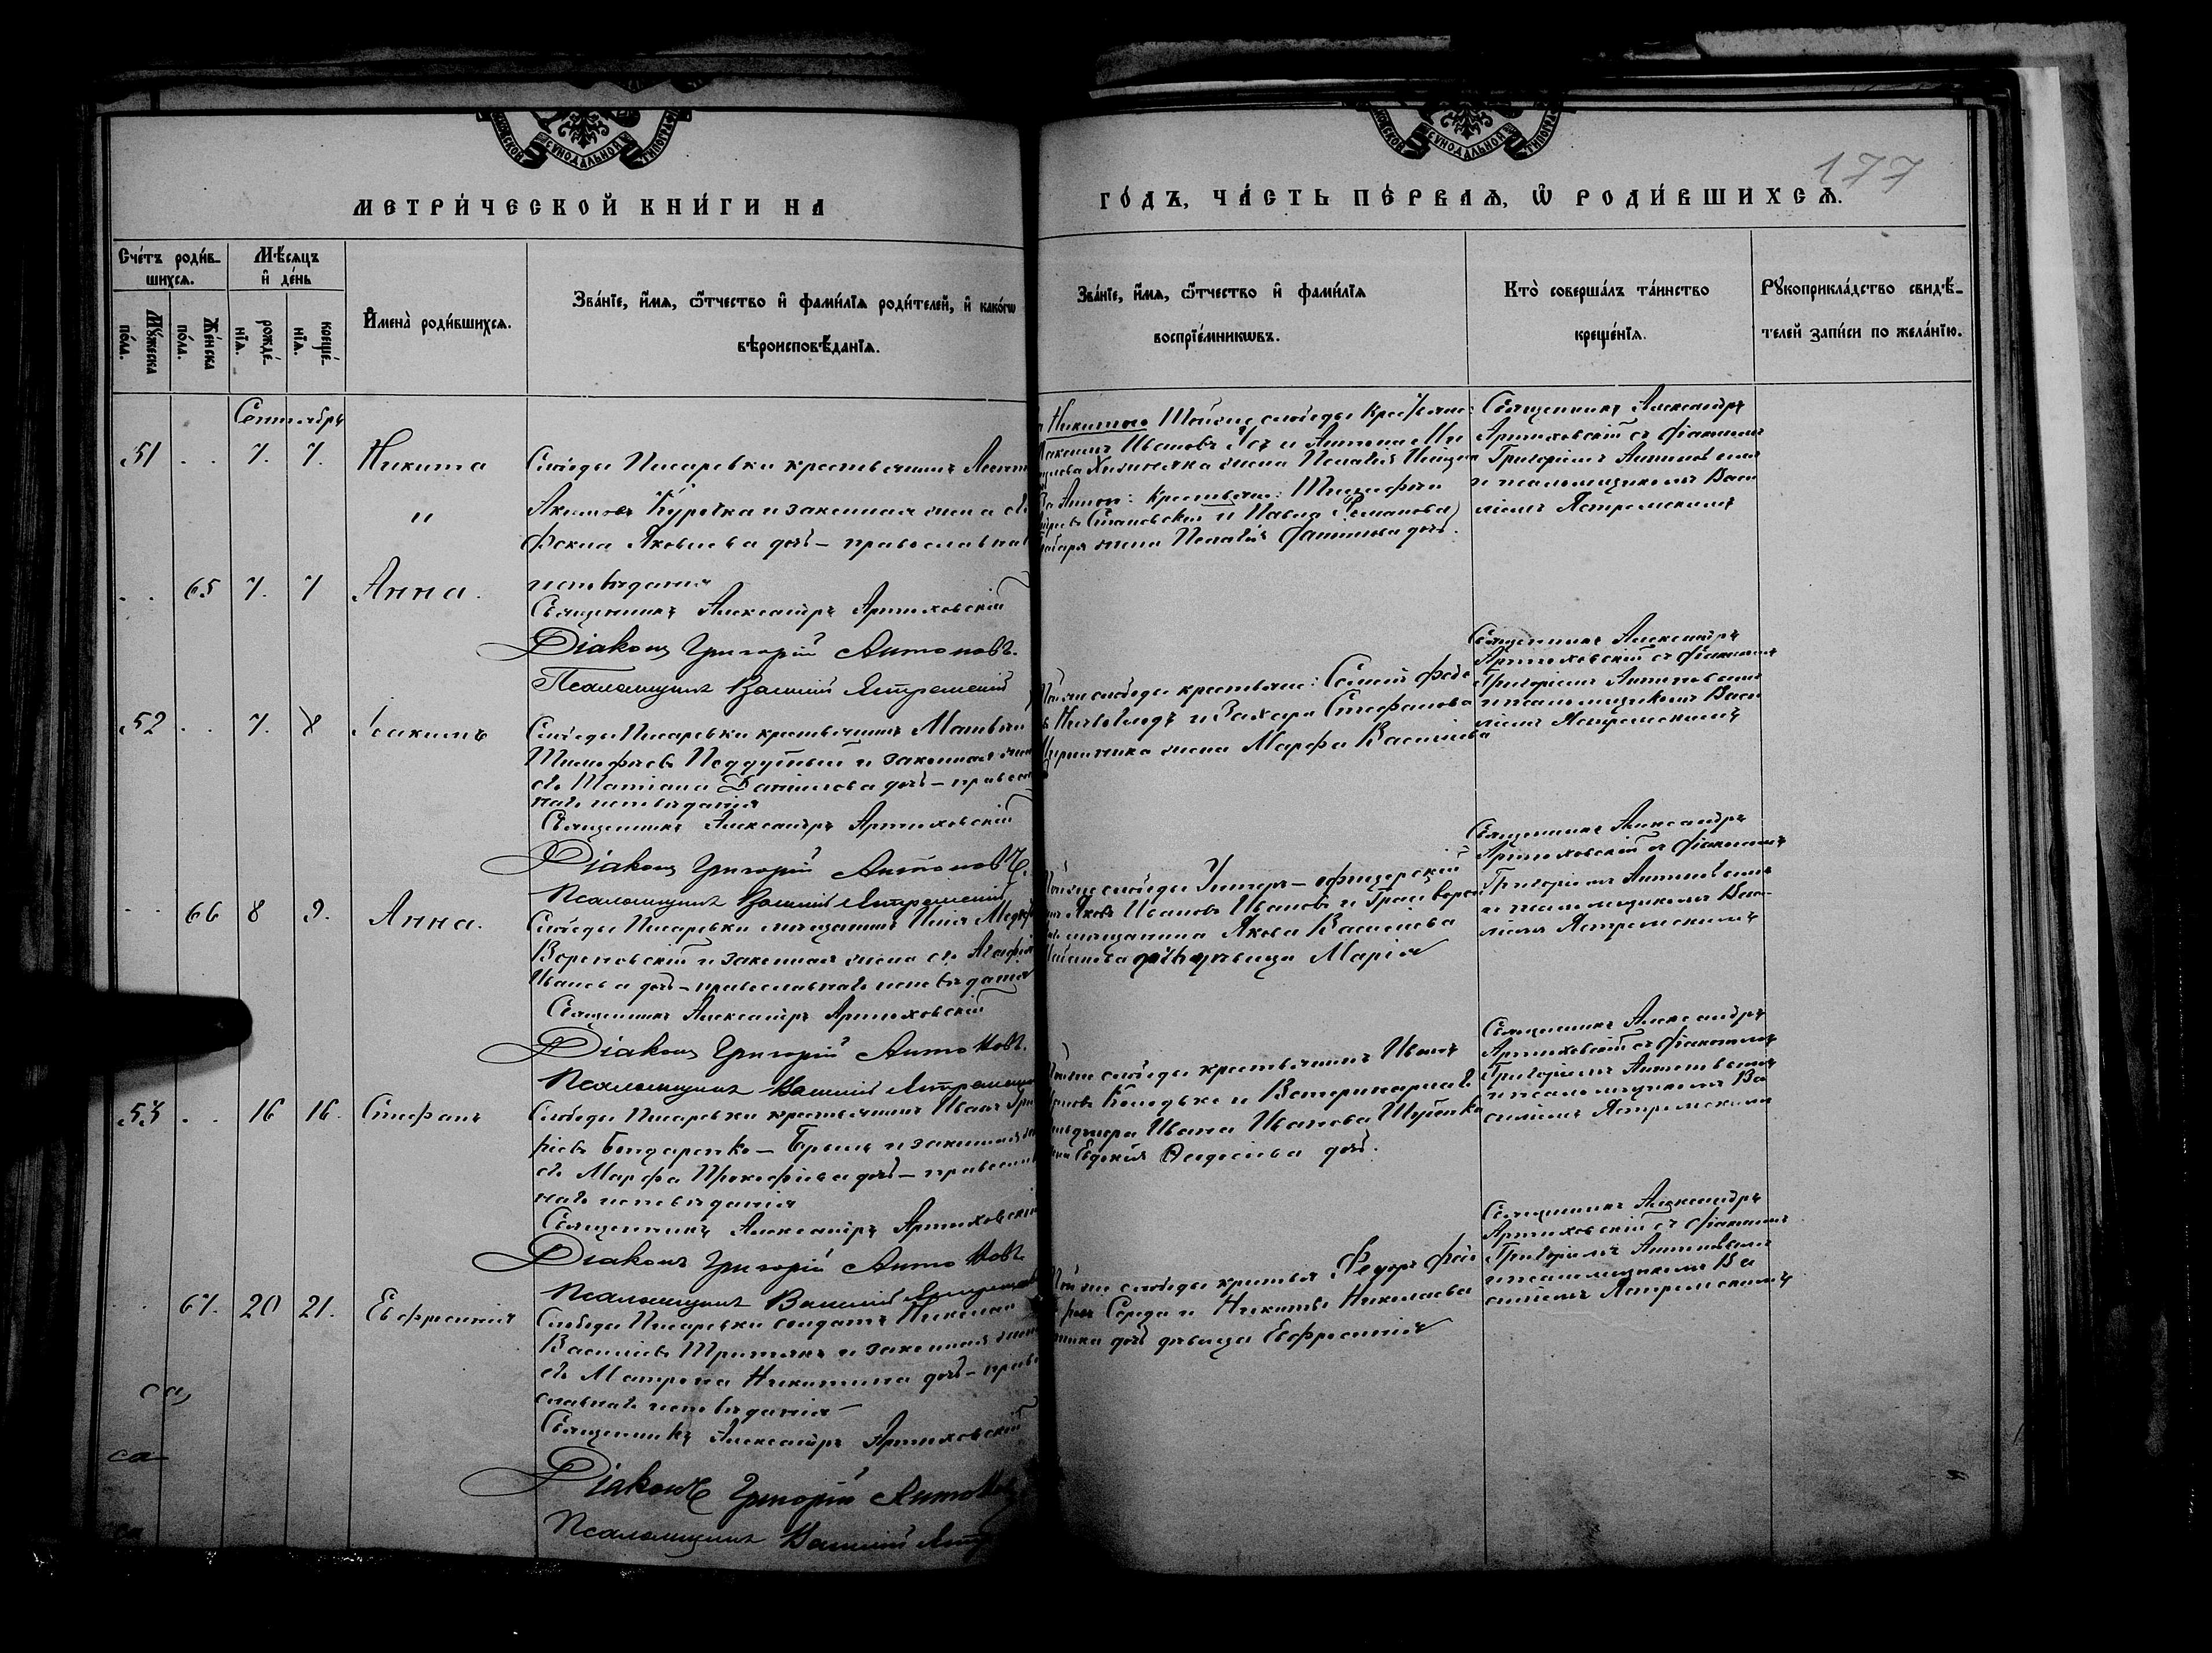 МЕТРИ́ЧЕСКОЙ КНИ́ГИ НА
ГО́ДЪ, ЧА́СТЬ ПЕ́РВАѦ, Ѡ҆ РОДИ́ВШИХСѦ.
177
Сче́тъ роди́в-
шихсѧ.
Мꙋ́жеска
по́ла.
Же́нска
по́ла.
Мѣ́сѧцъ
и҆ де́нь
рожде́-
нїѧ.
креще́-
нїѧ.
И҆мена̀ роди́вшихсѧ.
Зва́нїе, и҆́мѧ, ѻ҆́тчество и҆ фами́лїѧ роди́телей, и҆ како́гѡ
вѣроисповѣ́данїѧ.
Зва́нїе, и҆́мѧ, ѻ҆́тчество и҆ фами́лїѧ
воспрїе́мникѡвъ.
Кто̀ соверша́лъ та́инство
креще́нїѧ.
Рꙋкоприкла́дство свидѣ́-
телей за́писи по жела́нїю.
Сентябрь
51 7. 7. Никита
Слободы Писаревки крестьянинъ
Акимовъ Курочка и законная жена его
Фекла Яковлева дочь – православна
65 7. 7 Анна.
исповѣданія
Священникъ Александръ Артюховскій
Діаконъ Григорій Антоновъ.
Псаломщикъ Василій Ястремскій
Никитою Той же слободы
Ивановъ Усъ и Антона
жена Пелагія
Павла Романова
жена Пелагія дочь.
Священникъ Александръ
Артюховскій съ діакономъ
Григоріемъ Антоновымъ
и псаломщикомъ Васи
ліемъ Ястремскимъ
52 7. 8 Іоакимъ
Слободы Писаревки крестьянинъ Матвѣй
Тимофѣевъ Поддубный и законная жена
его Татіана Даніилова дочь – правосл
наго исповѣданія
Священникъ Александръ Артюховскій
Діаконъ Григорій Антоновъ.
Псаломщикъ Василій Ястремскій
Той же слободы крестьяне: Семенъ Фео
и Захарія Стефанова
жена Марфа Василіева
Священникъ Александръ
Артюховскій съ діакономъ
Григоріемъ Антоновымъ
и псаломщикомъ Васи
ліемъ Ястремскимъ
66 8 9. Анна.
Слободы Писаревки мѣщанинъ Илія
Вороновскій и законная жена его Агафія
Иванова дочь – православнаго исповѣданія
Священникъ Александръ Артюховскій
Діаконъ Григорій Антоновъ.
Псаломщикъ Василій Ястремскій
Той же слободы Унтеръ-офицерскій
Яковъ Ивановъ Ивановъ и Грайворон
мѣщанина Якова Василіева
дочь дѣвица Марія
Священникъ Александръ
Артюховскій съ діакономъ
Григоріемъ Антоновымъ
и псаломщикомъ Васи
ліемъ Ястремскимъ
53 16 16. Стефанъ
Слободы Писаревки крестьянинъ Иванъ Григо
ріевъ Бондаренко – и законная же
его Марфа Прокофіева дочь – православ
наго исповѣданія
Священникъ Александръ Артюховскій
Діаконъ Григорій Антоновъ
Псаломщикъ Василій Ястремскій
Той же слободы крестьянинъ Иванъ
и Ветеринарнаго
Ивана Иванова
Евдокія дочь.
Священникъ Александръ
Артюховскій съ діакономъ
Григоріемъ Антоновымъ
и псаломщикомъ Ва
силіемъ Ястремскимъ
67. 20 21. Евфросинія
Слободы Писаревки солдатъ Николай
Василіевъ и законная жена
его Матрона Никитина дочь – право
славнаго исповѣданія
Священникъ Александръ Артюховскій
Діаконъ Григорій Антоновъ
Псаломщикъ Василій Ястр
Той же слободы Федоръ
Середа и Никиты Николаева
дочь дѣвица Евфросинія
Священникъ Александръ
Артюховскій съ діакономъ
Григоріемъ Антоновымъ
и псаломщикомъ Ва
силіемъ Ястремскимъ